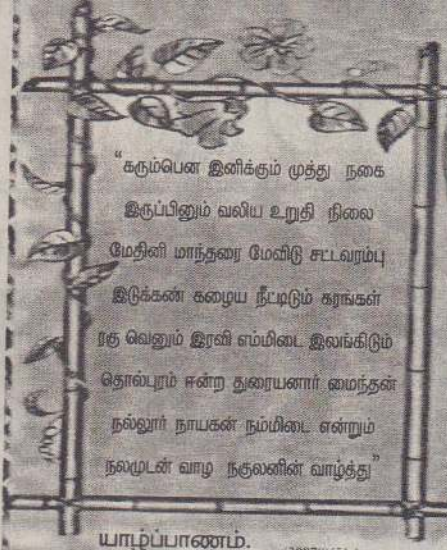 "கரும்பென இனிக்கும் முத்து நகை
இருப்பினும் வலிய உறுதி நிலை
மேதினி மாந்தரை மேவிடு சட்டவரம்பு
இடுக்கண் களைய நீட்டிடும் கரங்கள்
ரகு வெனும் இரவி எம்மிடை இலங்கிடும்
தொல்புரம் ஈன்ற துரையனார் மைந்தன்
நல்லூர் நாயகன் நம்மிடை என்றும்
நலமுடன் வாழ நகுலனின் வாழ்த்து"
யாழ்ப்பாணம்.